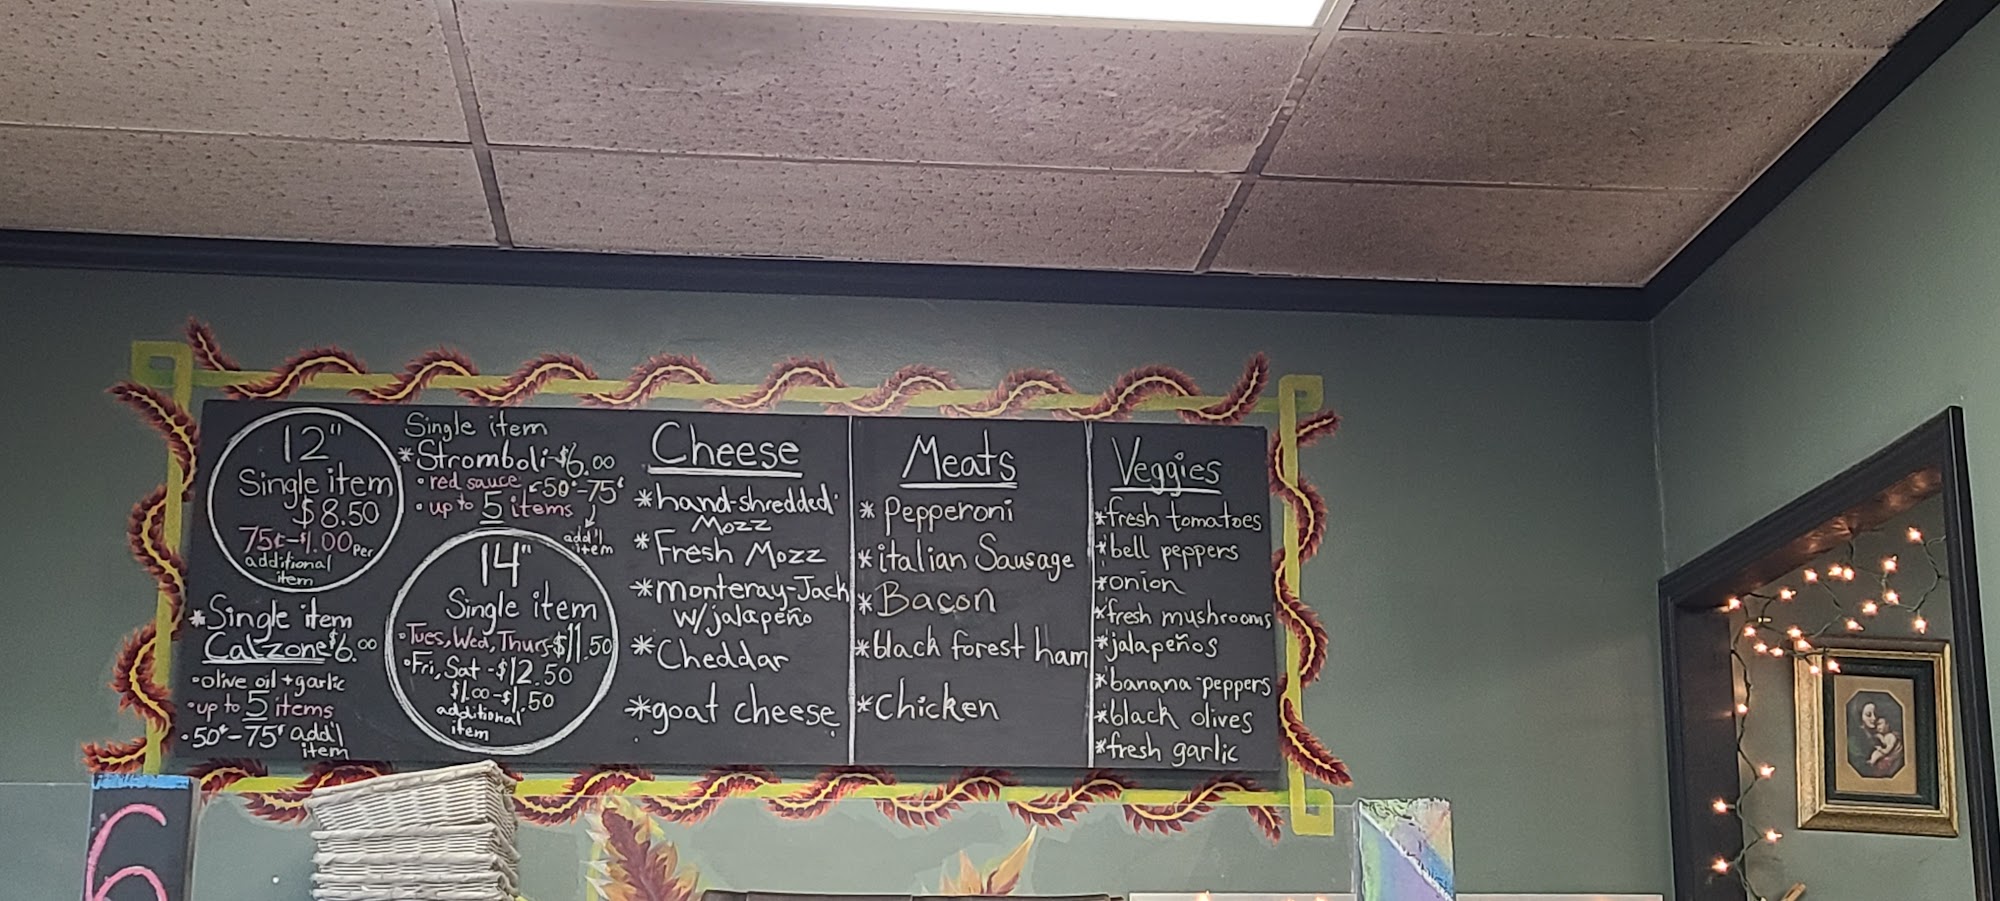 12"
Single item
$8.50
75¢-$1.00 Per
additional
item
*Single item
Calzone $6.00
•olive oil + garlic
•up to 5 items
•50¢-75¢ add'l
item
Single item
*Stromboli-$6.00
•red sauce •50¢-75¢
•up to 5 items
add'l
item
14"
Single item
•Tues, Wed, Thurs-$11.50
•Fri, Sat -$12.50
$1.00-$1.50
additional
item
Cheese
*hand-shredded
Mozz
*Fresh Mozz
*monteray-Jack
w/jalapeño
*Cheddar
*goat cheese
Meats
*Pepperoni
*italian Sausage
*Bacon
*black forest ham
*Chicken
Veggies
*fresh tomatoes
*bell peppers
*onion
*fresh mushrooms
*jalapeños
*banana-peppers
*black olives
*fresh garlic
6